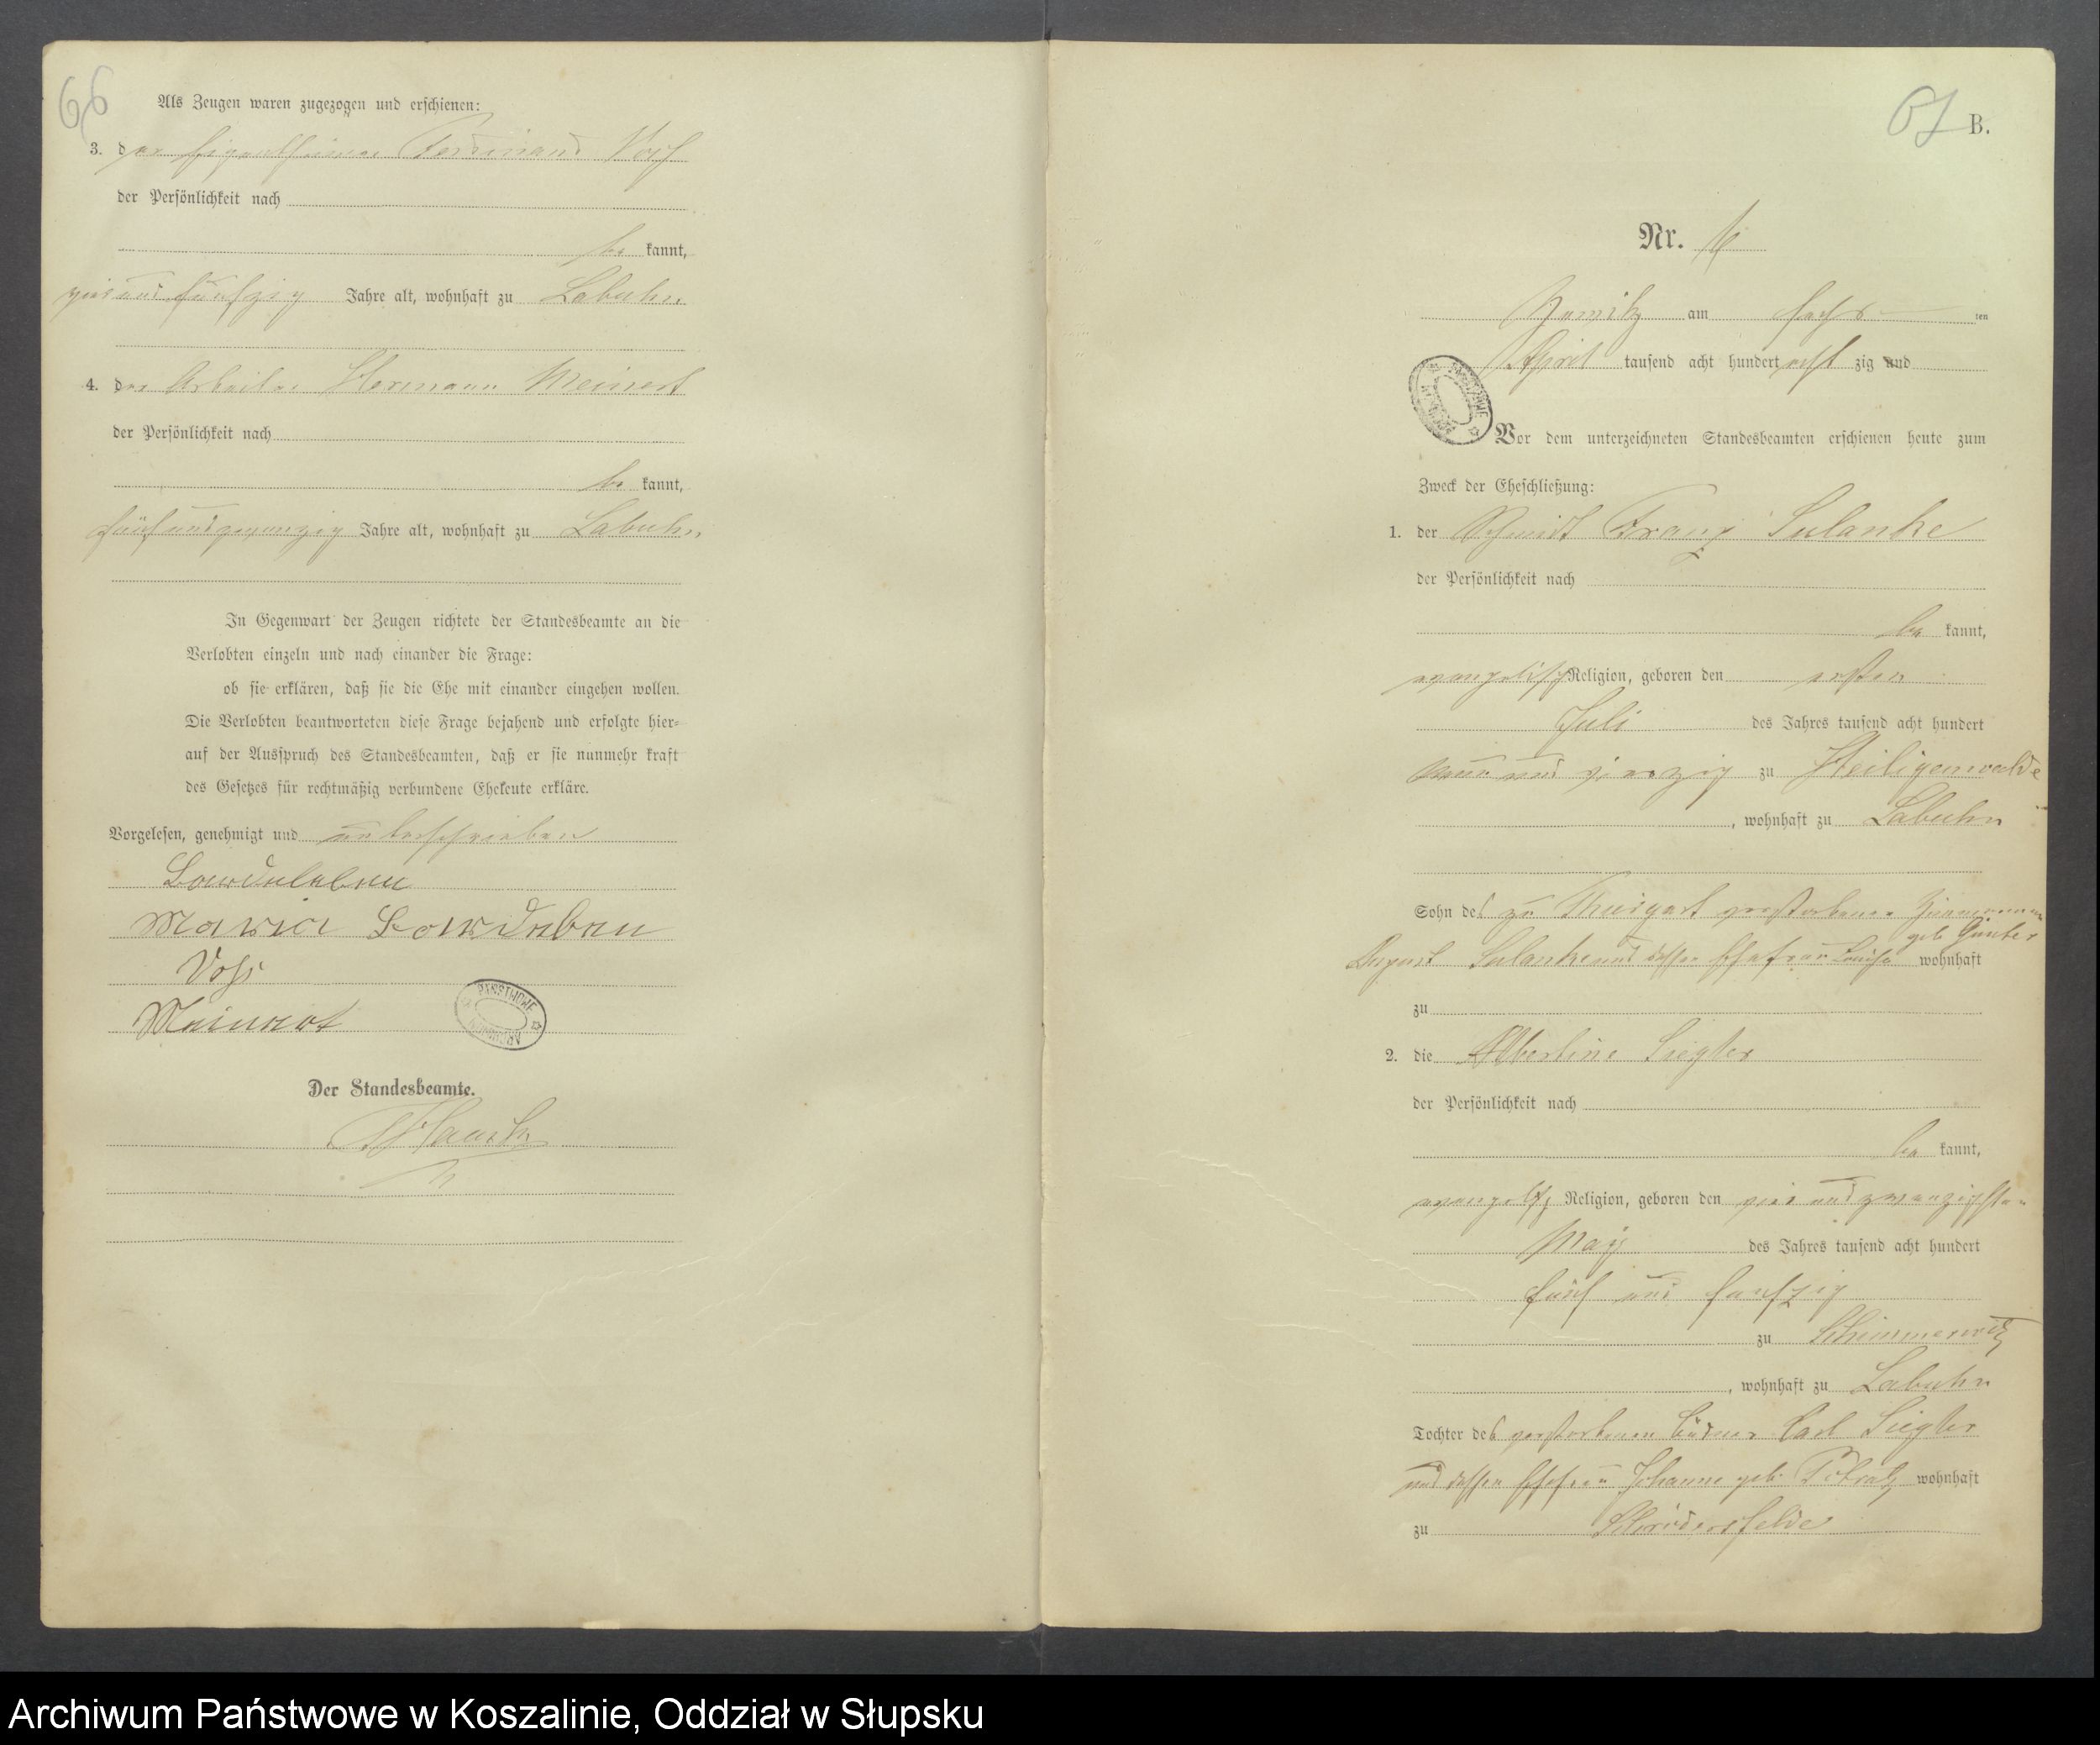 66
Als Zeugen waren zugezogen und erschienen:
3. der Eigenthümer Ferdinand Voß
der Persönlichkeit nach
be kannt,
fünfzig Jahre alt, wohnhaft zu Labuhn
4. der Arbeiter Hermann Meinert
der Persönlichkeit nach
be kannt,
fünfundzwanzig Jahre alt, wohnhaft zu Labuhn
In Gegenwart der Zeugen richtete der Standesbeamte an die
Verlobten einzeln und nach einander die Frage:
ob sie erklären, daß sie die Ehe mit einander eingehen wollen.
Die Verlobten beantworteten diese Frage bejahend und erfolgte hier-
auf der Ausspruch des Standesbeamten, daß er sie nunmehr kraft
des Gesetzes für rechtmäßig verbundene Eheleute erkläre.
Vorgelesen, genehmigt und unterschrieben
Maria
Voß
Meinert
Der Standesbeamte.
67
B.
Nr. 6
am sechs ten
April tausend acht hundert acht zig und
Vor dem unterzeichneten Standesbeamten erschienen heute zum
Zweck der Eheschließung:
1. der Schmidt Franz Sulanke
der Persönlichkeit nach
be kannt,
evangelisch Religion, geboren den ersten
Juli des Jahres tausend acht hundert
neun und vierzig zu Heiligenwalde
, wohnhaft zu Labuhn
Sohn des zu verstorbenen Zimmermann
August Sulanke und dessen Ehefrau Louise geb. wohnhaft
zu
2. die Albertine Siegler
der Persönlichkeit nach
be kannt,
evangelisch Religion, geboren den vier und zwanzigsten
May des Jahres tausend acht hundert
fünf und funfzig
zu Schimmerwitz
, wohnhaft zu Labuhn
Tochter des verstorbenen Büdner Carl Siegler
und dessen Ehefrau Johanne geb. wohnhaft
zu
Archiwum Państwowe w Koszalinie, Oddział w Słupsku